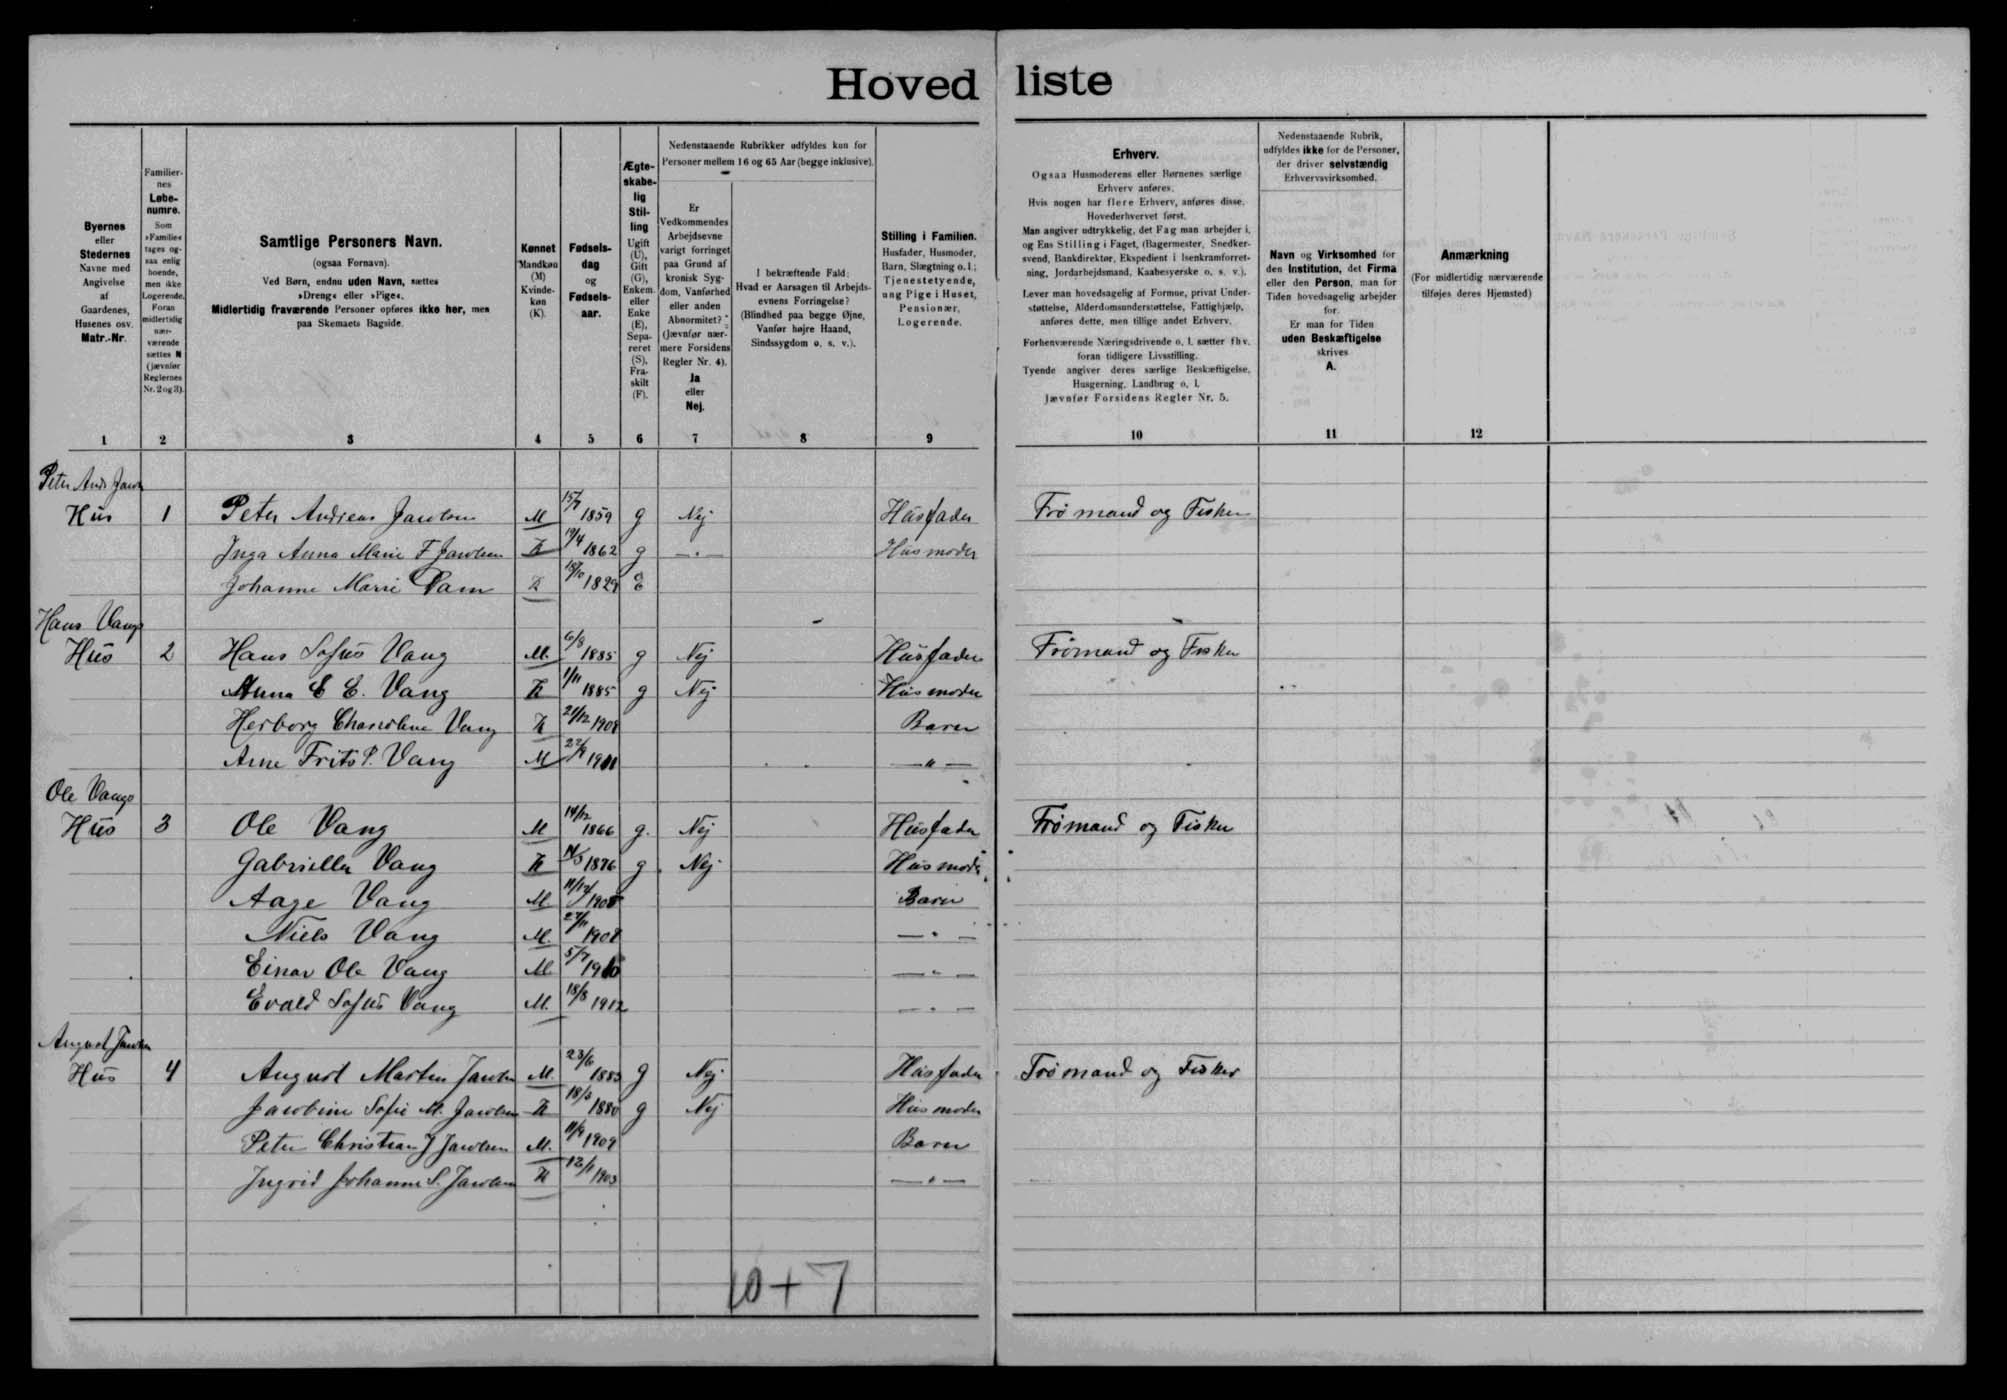 Hovedliste
Byernes
eller
Stedernes
Navne med
Angivelse
af
Gaardenes,
Husenes osv.
Matr.-Nr.
Familier-
nes
Løbe-
numre.
Som
»Familie«
tages og-
saa enlig
boende,
men ikke
Logerende.
Foran
midlertidig
nær-
værende
sættes N
(jævnfør
Reglernes
Nr. 2 og 3).
Samtlige Personers Navn.
(ogsaa Fornavn).
Ved Børn, endnu uden Navn, sættes
»Dreng« eller »Pige«.
Midlertidig fraværende Personer opføres ikke her, men
paa Skemaets Bagside.
Kønnet
Mandkøn
(M)
Kvinde-
køn
(K).
Fødsels-
dag
og
Fødsels-
aar.
Ægte-
skabe-
lig
Stil-
ling
Ugift
(U),
Gift
(G),
Enkem.
eller
Enke
(E),
Sepa-
reret
(S),
Fra-
skilt
(F).
Nedenstaaende Rubrikker udfyldes kun for
Personer mellem 16 og 65 Aar (begge inklusive).
Er
Vedkommendes
Arbejdsevne
varigt forringet
paa Grund af
kronisk Syg-
dom, Vanførhed
eller anden
Abnormitet?
(Jævnfør nær-
mere Forsidens
Regler Nr. 4).
Ja
eller
Nej.
I bekræftende Fald:
Hvad er Aarsagen til Arbejds-
evnens Forringelse?
(Blindhed paa begge Øjne,
Vanfør højre Haand,
Sindssygdom o. s. v.).
Stilling i Familien.
Husfader, Husmoder,
Barn, Slægtning o. l.;
Tjenestetyende,
ung Pige i Huset,
Pensionær,
Logerende.
Erhverv.
Ogsaa Husmoderens eller Børnenes særlige
Erhverv anføres.
Hvis nogen har flere Erhverv, anføres disse.
Hovederhvervet først.
Man angiver udtrykkelig, det Fag man arbejder i,
og Ens Stilling i Faget, (Bagermester, Snedker-
svend, Bankdirektør, Ekspedient i Isenkramforret-
ning, Jordarbejdsmand, Kaabesyerske o. s. v.).
Lever man hovedsagelig af Formue, privat Under-
støttelse, Alderdomsunderstøttelse, Fattighjælp,
anføres dette, men tillige andet Erhverv.
Forhenværende Næringsdrivende o. l. sætter fhv.
foran tidligere Livsstilling.
Tyende angiver deres særlige Beskæftigelse,
Husgerning, Landbrug o. l.
Jævnfør Forsidens Regler Nr. 5.
Nedenstaaende Rubrik,
udfyldes ikke for de Personer,
der driver selvstændig
Erhvervsvirksomhed.
Navn og Virksomhed for
den Institution, det Firma
eller den Person, man for
Tiden hovedsagelig arbejder
for.
Er man for Tiden
uden Beskæftigelse
skrives
A.
Anmærkning
(For midlertidig nærværende
tilføjes deres Hjemsted)
1 2 3 4 5 6 7 8 9 10 11 12
Peter Andr Jacob
Hus 1 Peter Andreas Jacobsen M 15/7 1859 g Nej Husfader Frømand og Fisker
Inga Anna Marie F Jacobsen K 19/4 1862 g —"— Husmoder
Johanne Marie Dam K 18/10 1829 E
Hans Vangs
Hus 2 Hans Sofus Vang M. 6/8 1885 g Nej Husfader Frømand og Fisker
Anna E E. Vang K 1/11 1885 g Nej Husmoder
Herborg Vang K 21/12 1908 Barn
Arne Frits P. Vang M 1911 —"—
Ole Vangs
Hus 3 Ole Vang M 14/12 1866 g. Nej Husfader Frømand og Fisker
Gabriella Vang K 1876 g. Nej Husmoder
Aage Vang M 11/12 Barn
Niels Vang M. 27/11 1908 —"—
Einar Ole Vang M 5/7 1910 —"—
Evald Sofus Vang M. 18/8 1912 —"—
August Jacobsen
Hus 4 August Martin Jacobsen M. 23/6 1883 g Nej Husfader Frømand og Fisker
Jacobine Sofie M. Jacobsen K 18/3 1880 g Nej Husmoder
Peter Christian J Jacobsen M. 11/9 1909 Barn
Ingrid Johanne S. Jacobsen K 12/11 1903 —"—
10+7